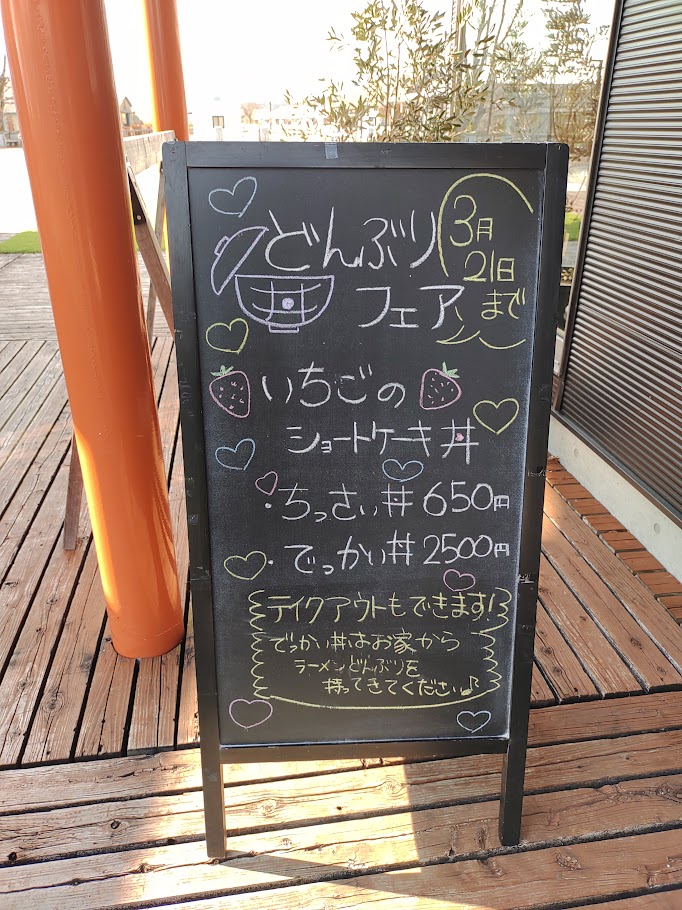 どんぶり
丼 フェア
3月
21日
まで
いちごの
ショートケーキ丼
・ちっさい丼 650円
・でっかい丼 2500円
テイクアウトもできます!
でっかい丼はお家から
ラーメンどんぶりを
持ってきてください♪